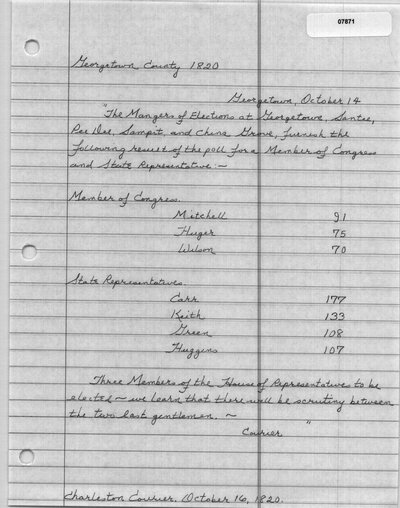 07871
Georgetown County 1820
Georgetown, October 14
"The Mangers of Elections at Georgetown, Santee,
Pee Dee, Sampit, and China Grove, furnish the
following result of the poll for a Member of Congress
and State Representative:~
Member of Congress.
Mitchell 91
Huger 75
Wilson 70
State Representatives.
Carr 177
Keith 133
Green 108
Huggins 107
Three Members of the House of Representatives to be
elected ~ we learn that there will be scrutiny between
the two last gentlemen. ~ "
Courier
Charleston Courier, October 16, 1820.